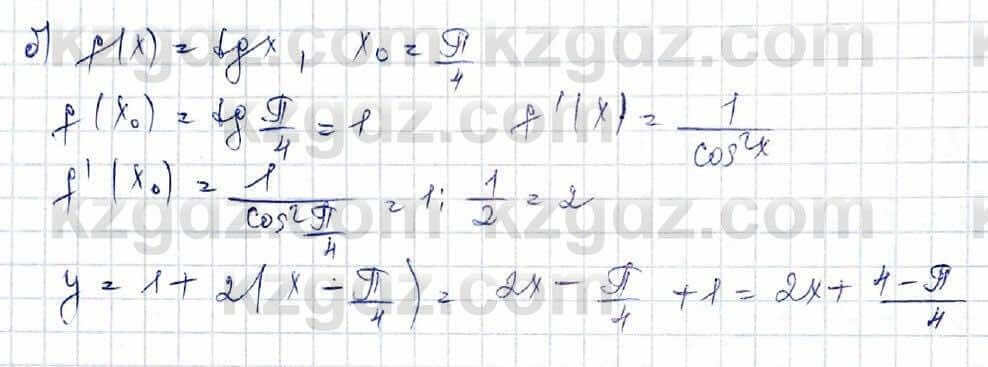 б) f(x) = tg x, x₀ = π/4
f(x₀) = tg π/4 = 1 f'(x) = 1/cos²x
f'(x₀) = 1/cos² π/4 = 1 : 1/2 = 2
y = 1 + 2(x - π/4) = 2x - π/4 + 1 = 2x + 4-π/4
kzgdz.com kzgdz.com
kzgdz.com kzgdz.com
kzgdz.com kzgdz.com
kzgdz.com kzgdz.com